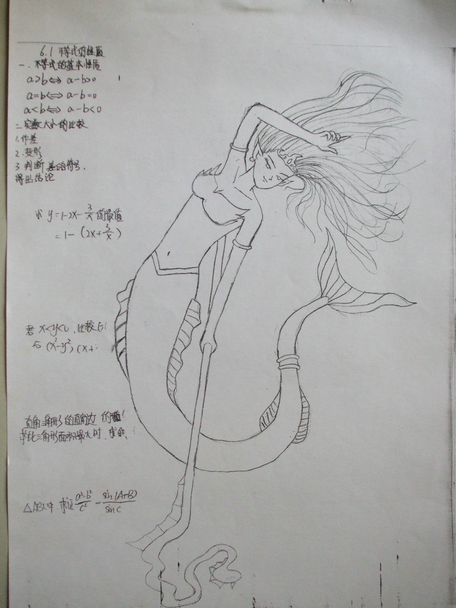 6.1 不等式的性质
一. 不等式的基本性质
a>b⟺a-b>0
a=b⟺a-b=0
a<b⟺a-b<0
二. 实数大小的比较
1. 作差
2. 变形
3. 判断差的符号,
得出结论
y=1-2x-3/x 的最值
=1-(2x+3/x)
若 x<y<0, 比较
与 (x²-y²)(x+
直角三角形的
三角形面积最大时,
△ABC中, 求证 (a²-b²)/c² = sin(A-B)/sinC